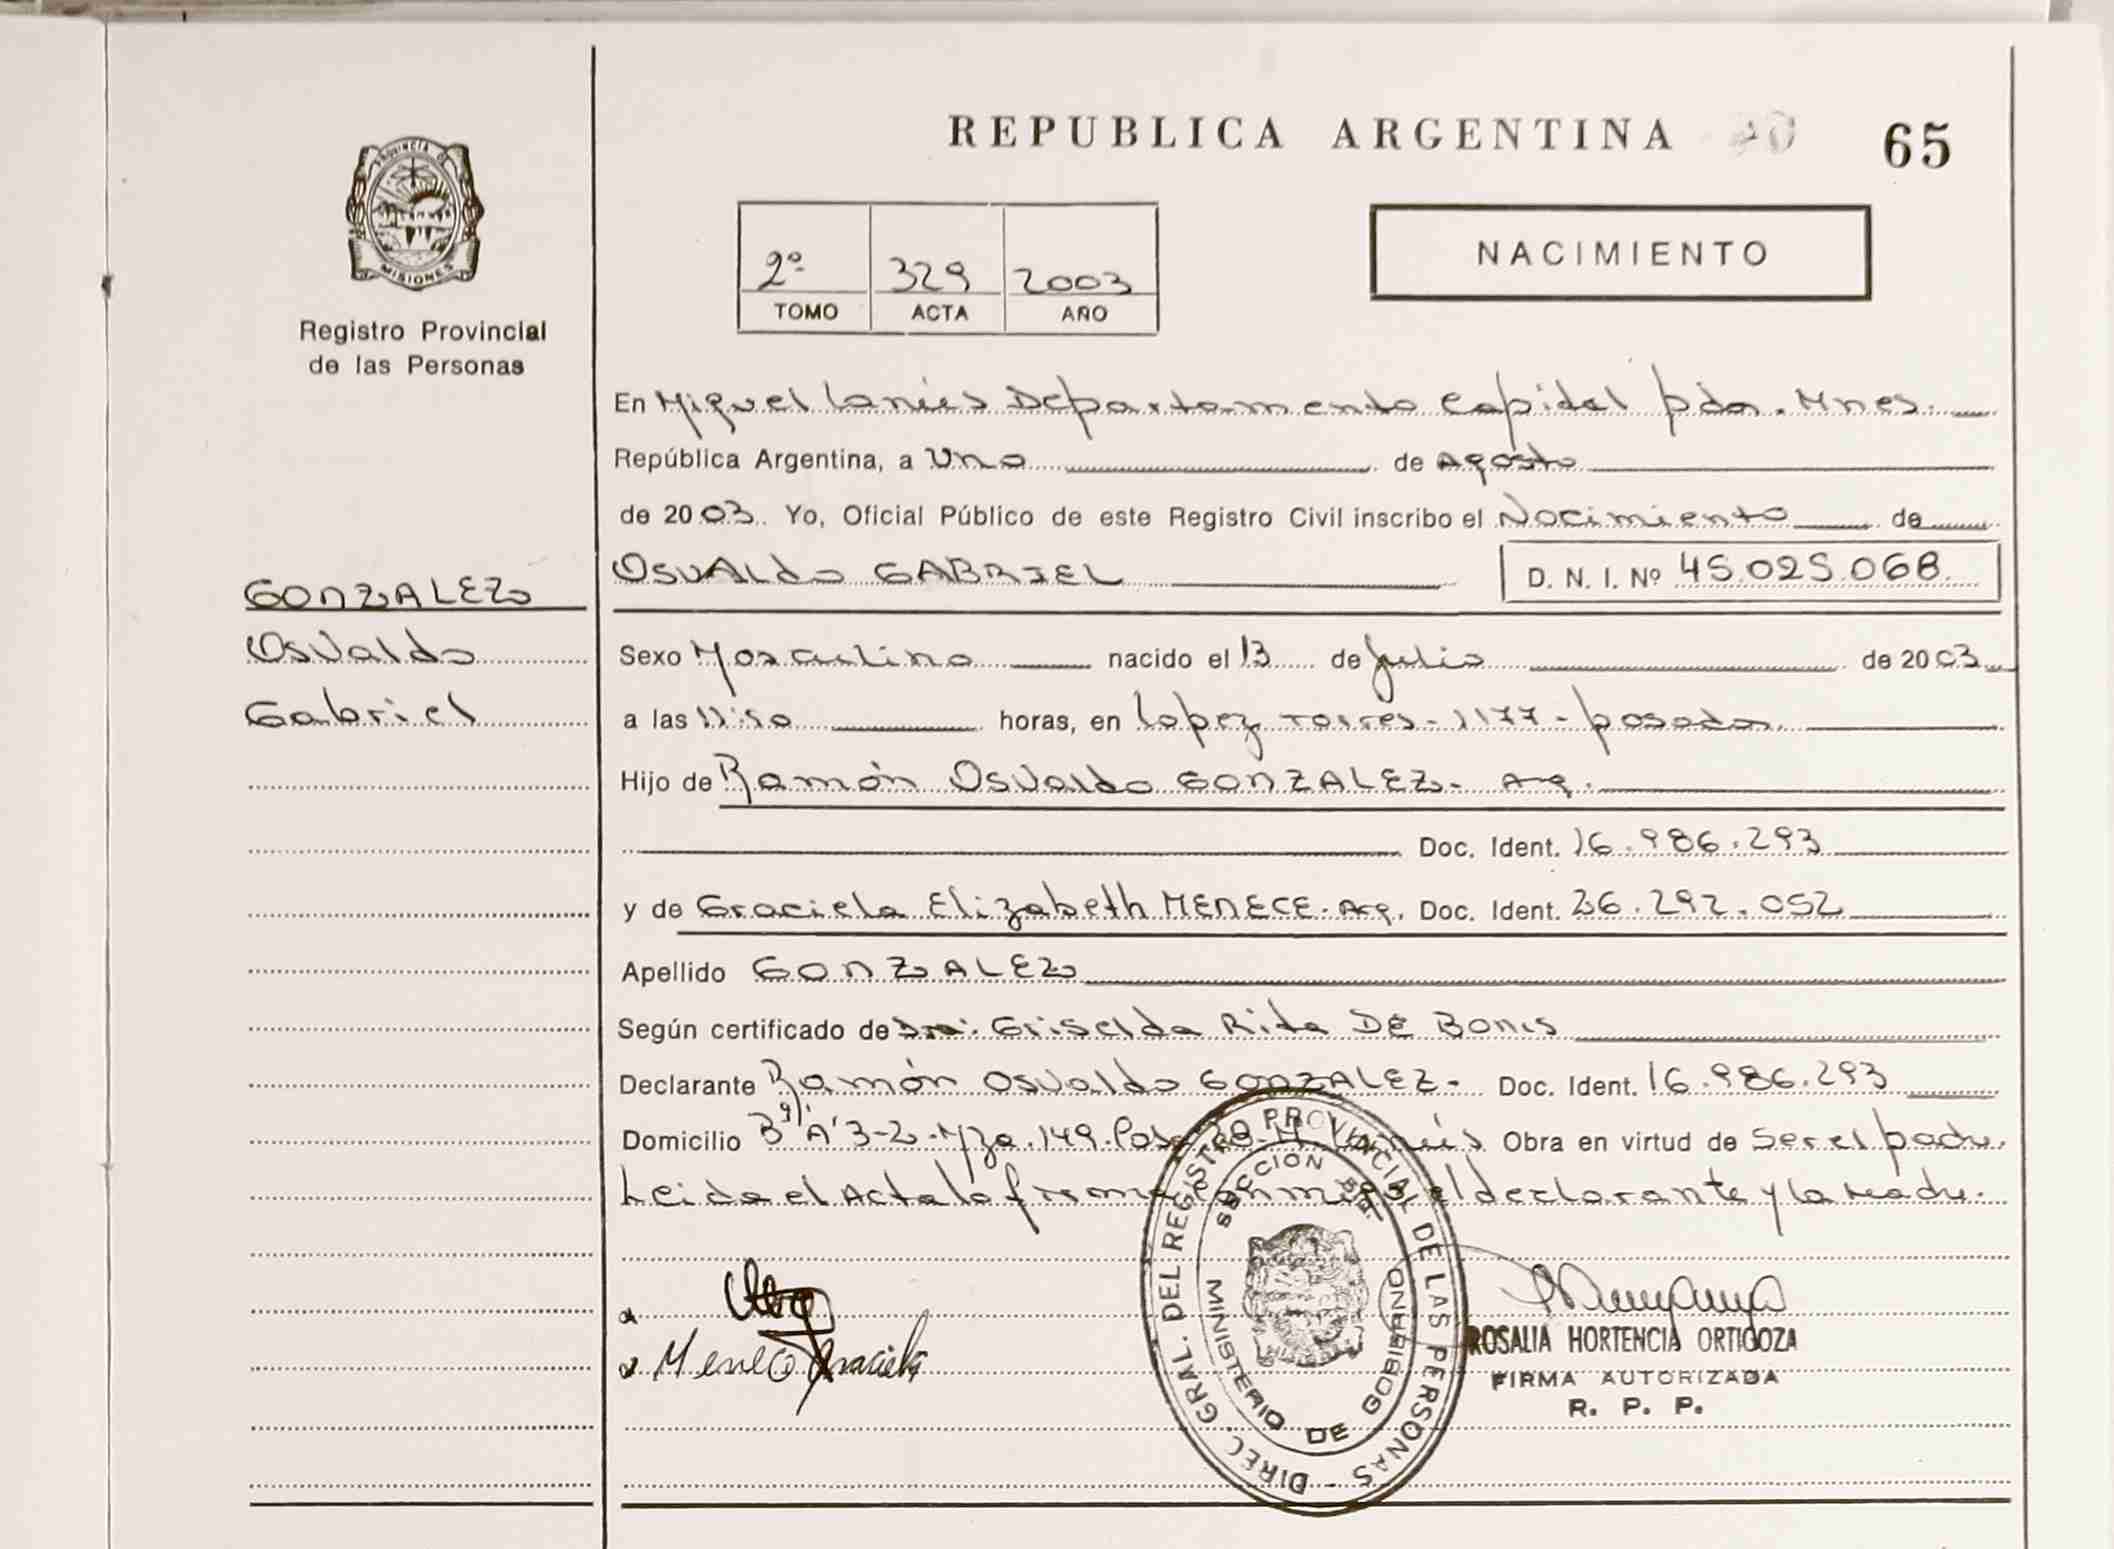 REPUBLICA ARGENTINA
65
PROVINCIA DE
MISIONES
Registro Provincial
de las Personas
2º 329 2003
TOMO ACTA AÑO
NACIMIENTO
En Miguel Lanús Departamento Capital pcia. Mnes.
República Argentina, a Uno de Agosto
de 2003. Yo, Oficial Público de este Registro Civil inscribo el Nacimiento de
OSVALDO GABRIEL D. N. I. Nº 45.025.068
GONZALEZ
Osvaldo
Gabriel
Sexo Masculino nacido el 13 de Julio de 2003
a las 11:50 horas, en Lopez Torres - 1177 - posadas
Hijo de Ramón Osvaldo GONZALEZ - Arg.
Doc. Ident. 16.986.293
y de Graciela Elizabeth MENECE. Arg. Doc. Ident. 26.292.052
Apellido GONZALEZ
Según certificado de Dra. Griselda Rita DE BONIS
Declarante Ramón Osvaldo GONZALEZ - Doc. Ident. 16.986.293
Domicilio Bº "A" 3-2 - Mza. 149. Obra en virtud de Ser el padre.
Leida el Acta la firman conmigo el declarante y la Madre.
Menece Graciela
DIREC. GRAL. DEL REGISTRO PROVINCIAL DE LAS PERSONAS
SECCION
MINISTERIO DE GOBIERNO
ROSALIA HORTENCIA ORTIGOZA
FIRMA AUTORIZADA
R. P. P.